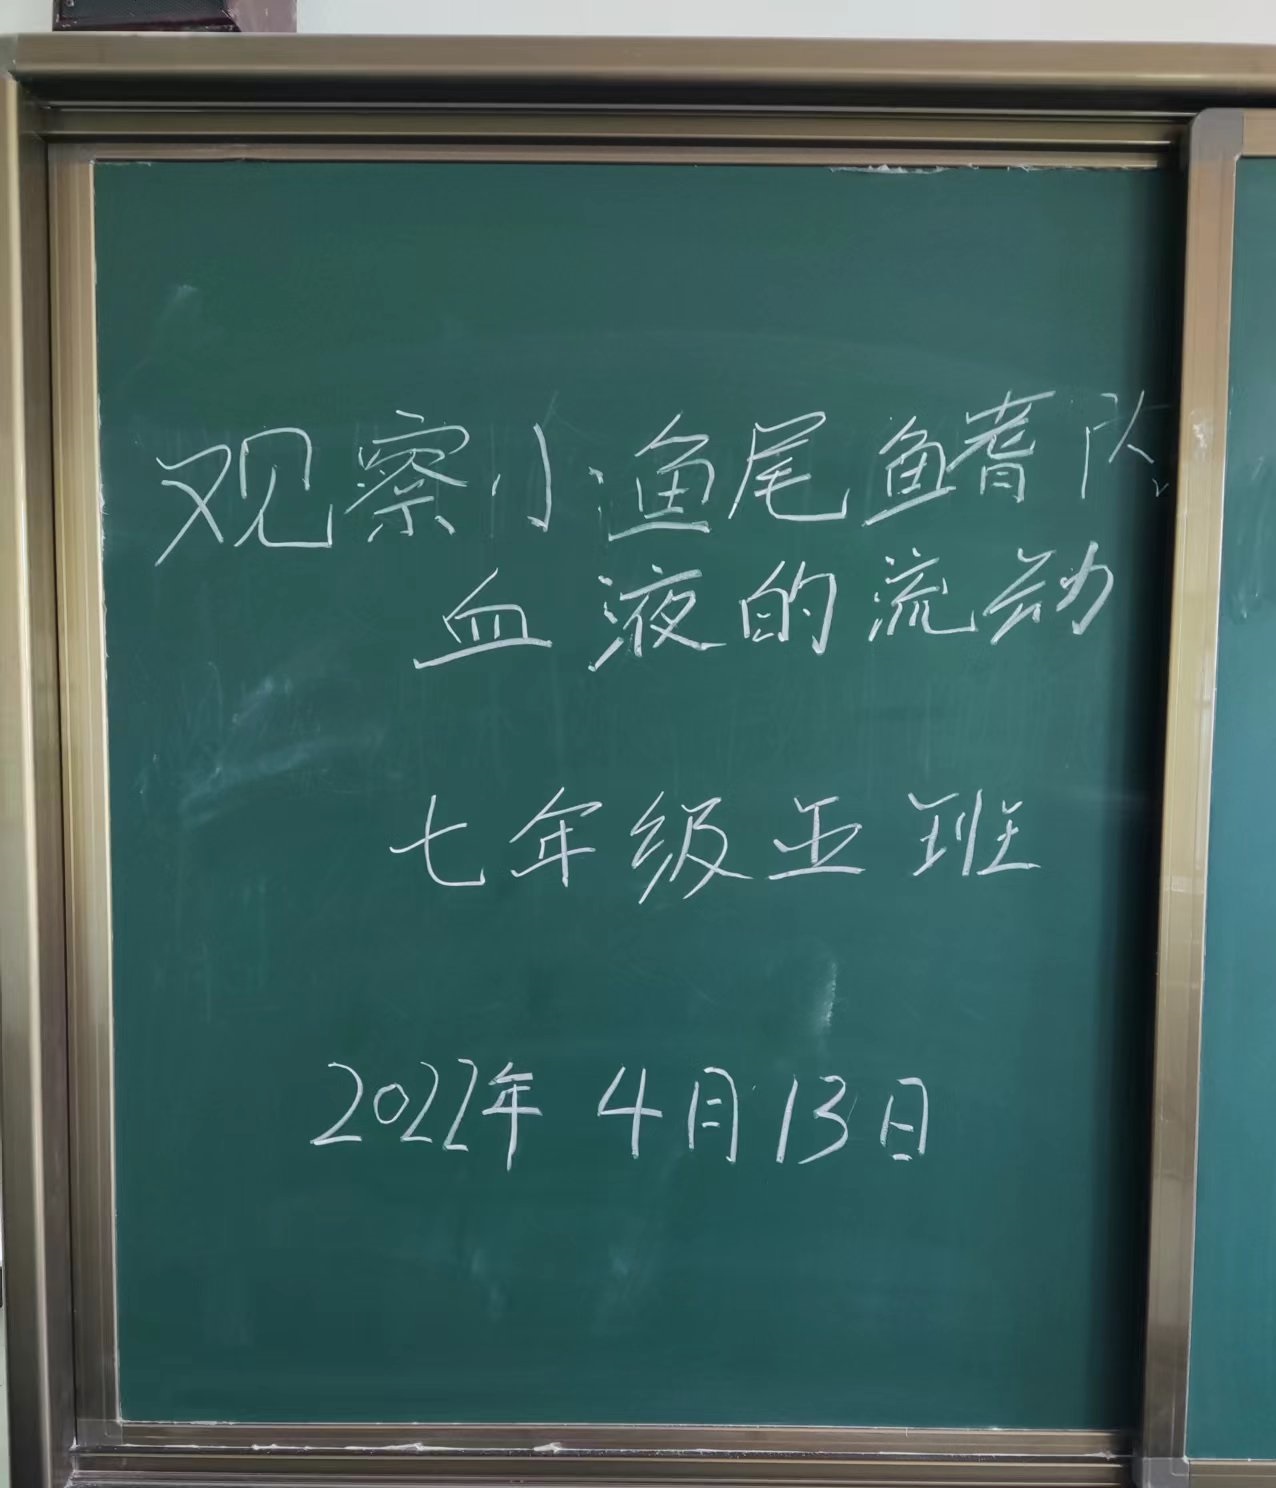 观察小鱼尾鳍内
血液的流动
七年级五班
2022年4月13日